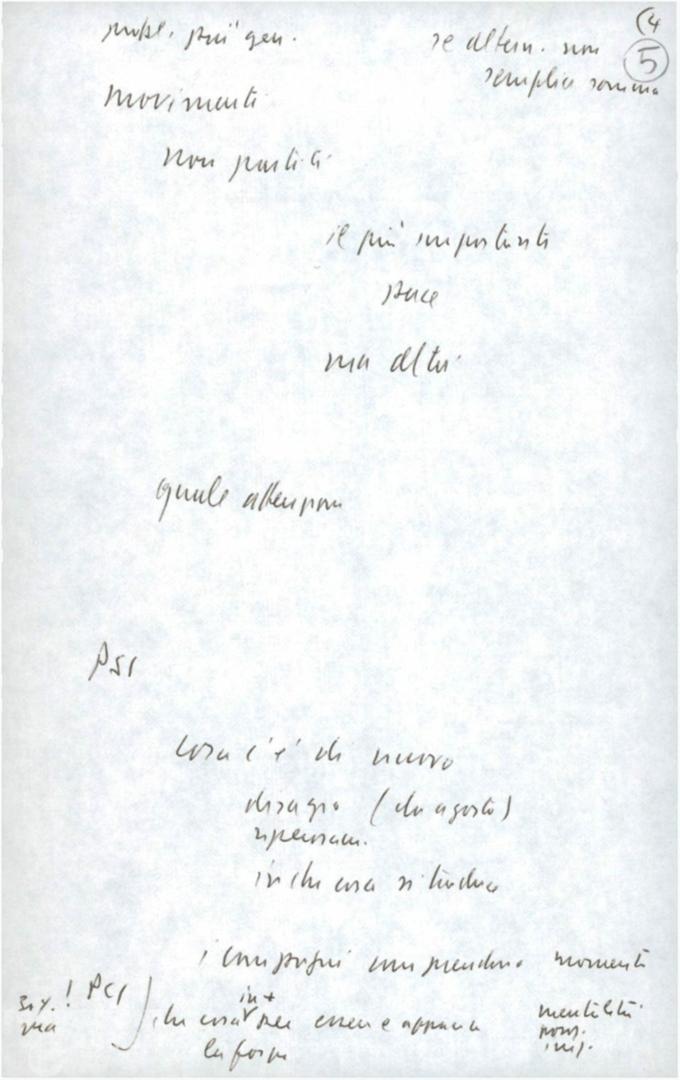 probl. più gen.
se altern. non
semplice somma
(4
5
Movimenti
non partiti
il più importante
pace
ma altri
quale attenzione
PSI
Cosa c'è di nuovo
disagio (da agosto)
ripensam.
in che cosa si traduce
i compagni comprendono momento
! PCI
in +
che cosa per essere e apparire
la forza
mentalità